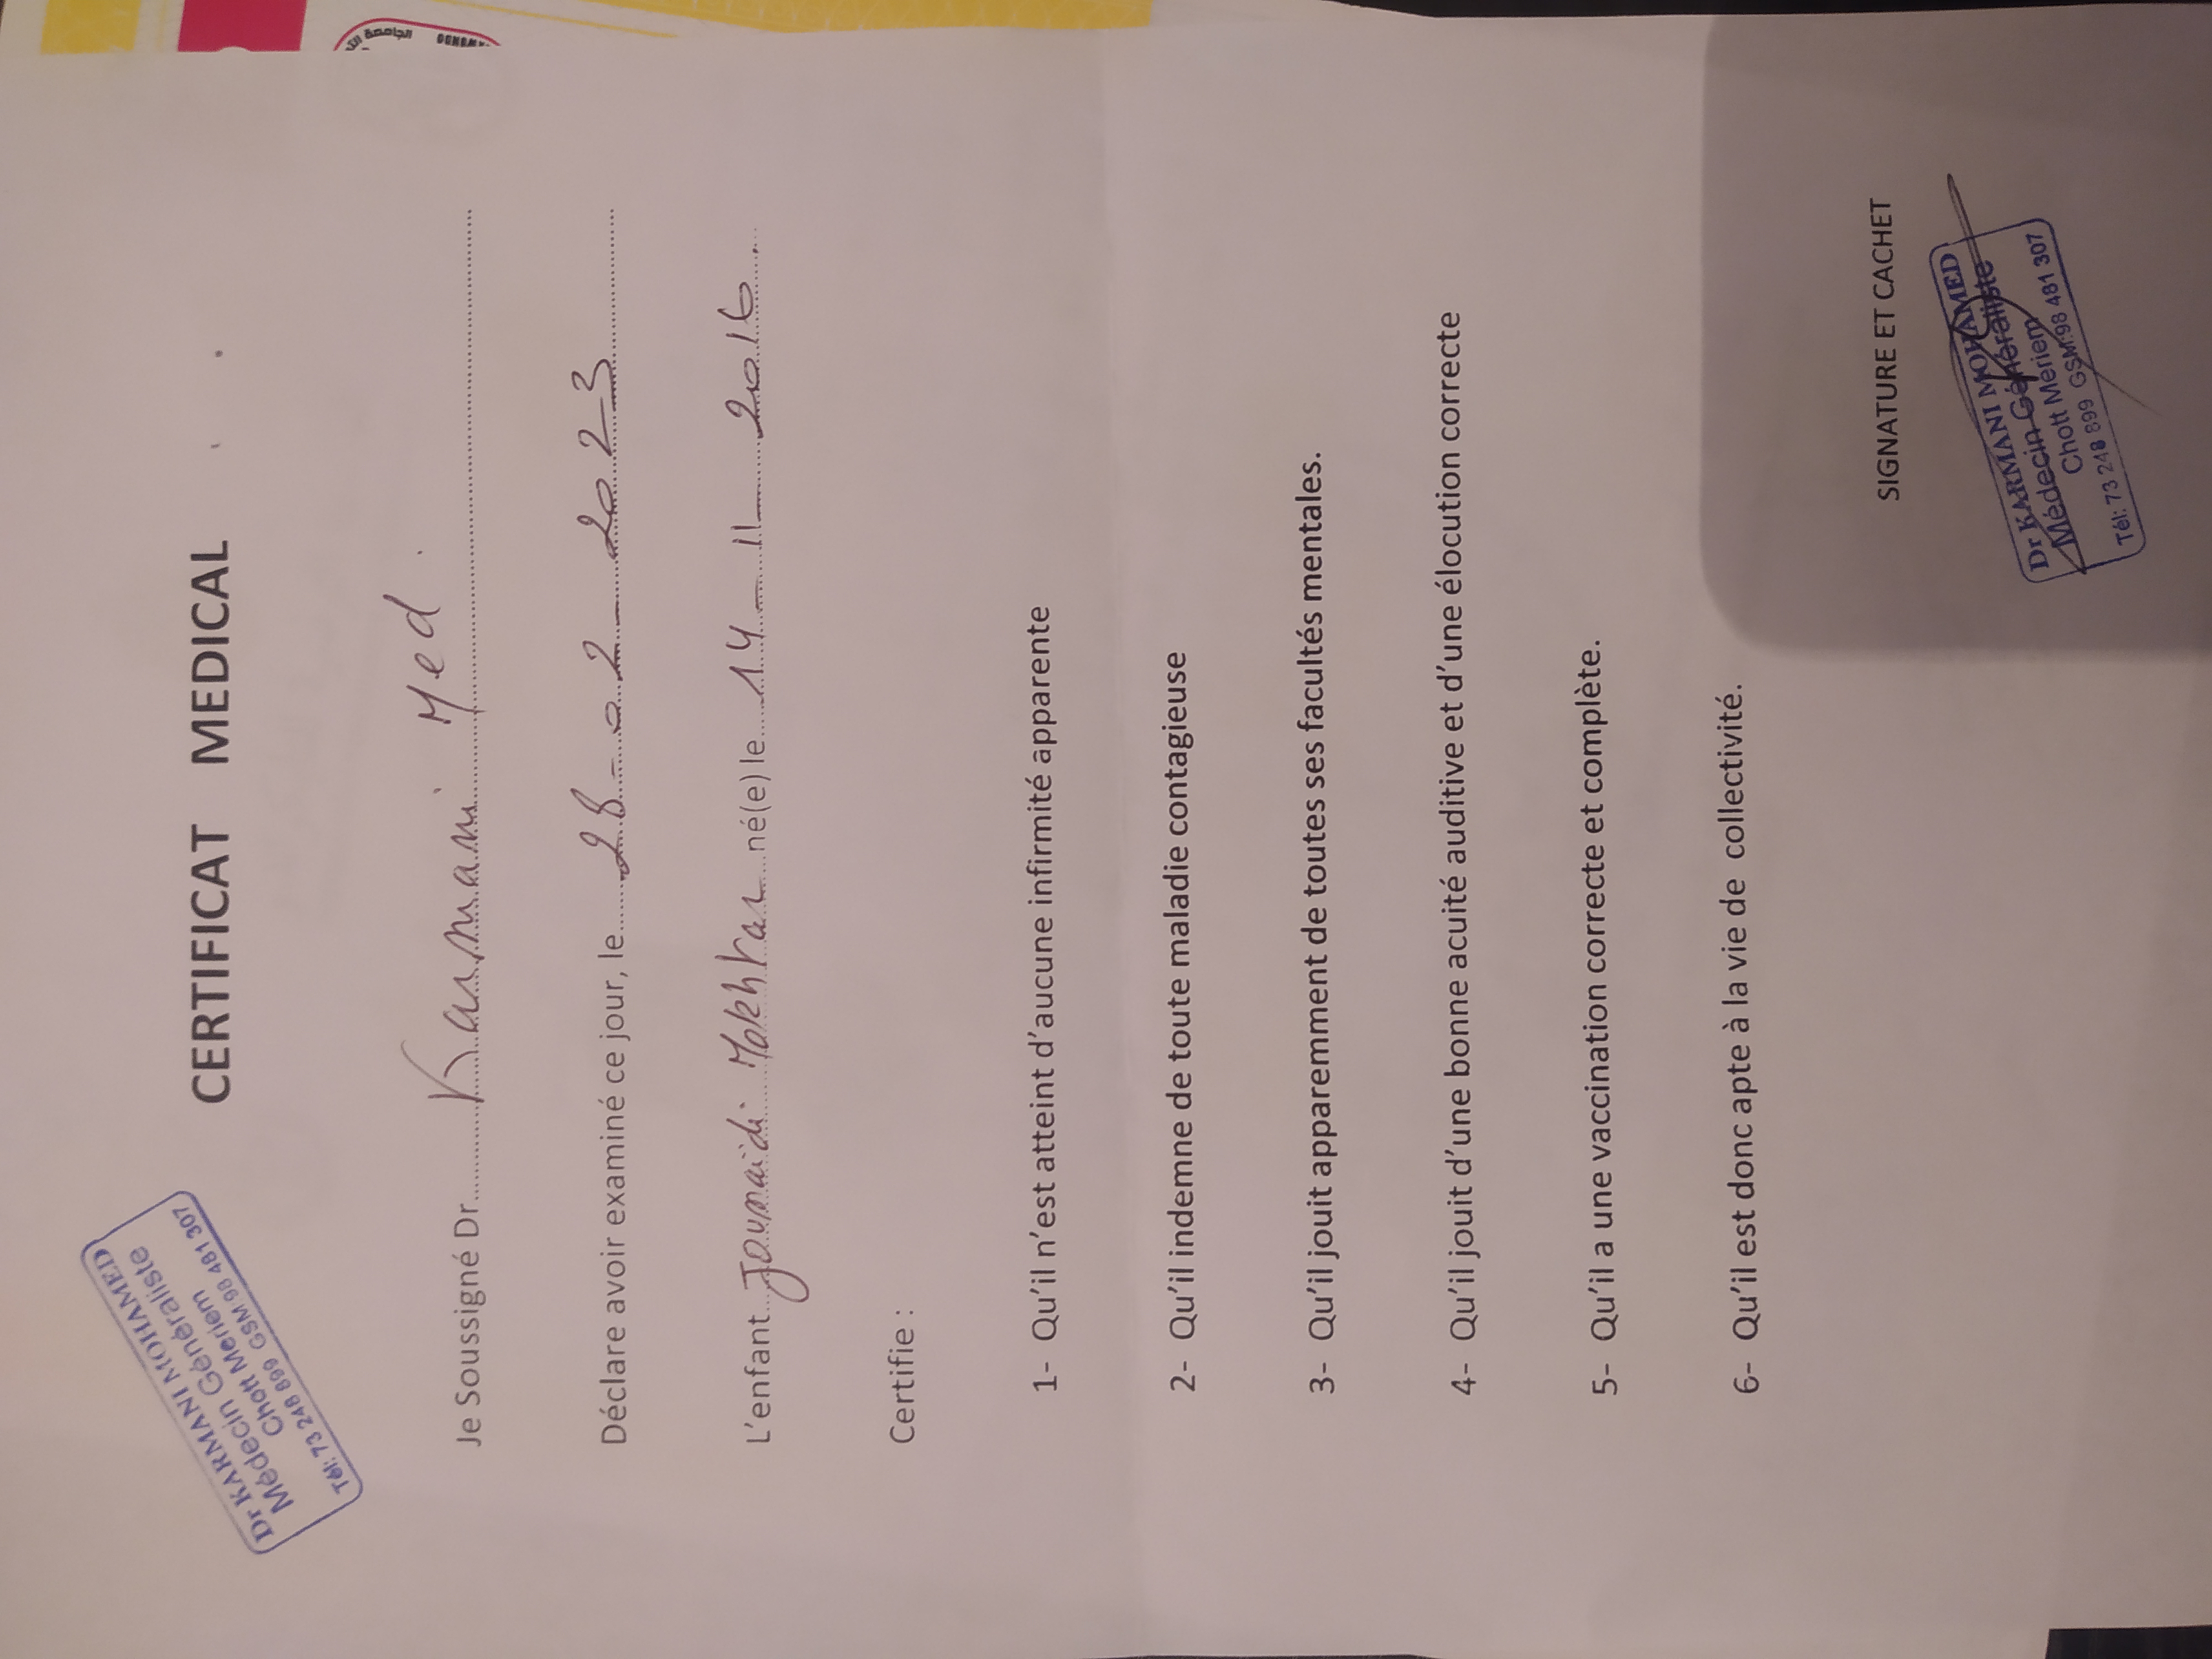 الجامعة
Dr KARMANI MOHAMED
Médecin Généraliste
Chott Meriem
Tél: 73 248 899 GSM 98 481 307
CERTIFICAT MEDICAL
Je Soussigné Dr Karmani Med.
Déclare avoir examiné ce jour, le 28 - 02 - 2023
L'enfant Joumaidi Mokhtar né(e) le 14 - 11 - 2016
Certifie :
1- Qu'il n'est atteint d'aucune infirmité apparente
2- Qu'il indemne de toute maladie contagieuse
3- Qu'il jouit apparemment de toutes ses facultés mentales.
4- Qu'il jouit d'une bonne acuité auditive et d'une élocution correcte
5- Qu'il a une vaccination correcte et complète.
6- Qu'il est donc apte à la vie de collectivité.
SIGNATURE ET CACHET
Dr KARMANI MOHAMED
Médecin Généraliste
Chott Meriem
Tél: 73 248 899 GSM:98 481 307